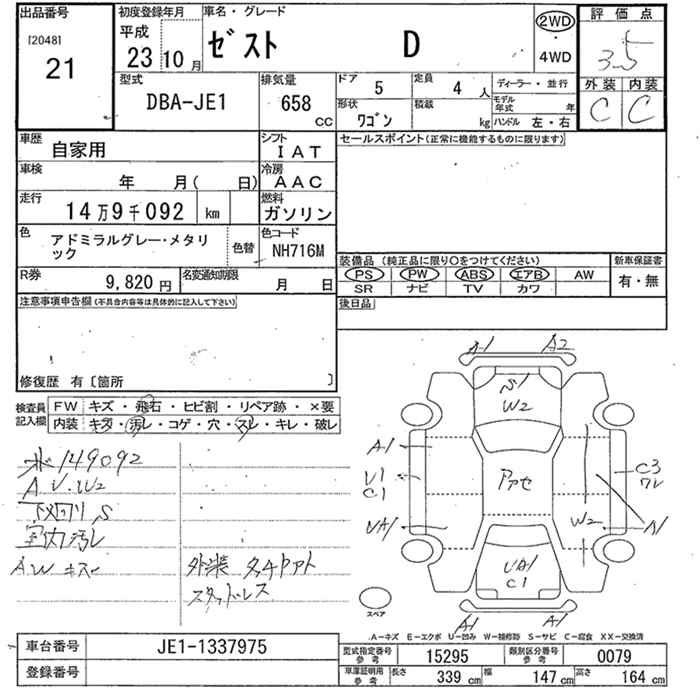 出品番号 初度登録年月 車名・グレード 2WD 評価点
[2048] 平成 ゼスト D 3.5
21 23 10月 4WD 外装 内装
型式 排気量 ドア 5 定員 4人 ディーラー・並行 C C
DBA-JE1 658 CC 形状 ワゴン 積載 kg モデル年式 年
ハンドル 左・右
車歴 自家用 シフト IAT セールスポイント(正常に機能するものに限ります)
車検 年 月( 日) 冷房 AAC
走行 14万9千092 km 燃料 ガソリン
色 アドミラルグレー・メタリック 色替 色コード NH716M
装備品(純正品に限り○をつけてください) 新車保証書
R券 9,820円 名変通知期限 月 日 PS PW ABS エアB AW 有・無
SR ナビ TV カワ
注意事項申告欄(不具合内容等は具体的に記入して下さい) 後日品
修復歴 有〔箇所 〕
検査員記入欄 FW キズ・飛石・ヒビ割・リペア跡・×要
内装 キズ・汚レ・コゲ・穴・スレ・キレ・破レ
A1 A2
S1
W2
メ149092 A1 C3
A.U.W2 U1 ワレ
下回りS C1 アァセ
室内汚レ UA1 W2 A1
A.W キズ 外装 タッチアト UA1
スタッドレス C1
スペア A1 A1
A-キズ E-エクボ U-凹み W-補修跡 S-サビ C-腐食 XX-交換済
車台番号 JE1-1337975 型式指定番号 参考 15295 類別区分番号 参考 0079
登録番号 車庫証明用 参考 長さ 339 cm 幅 147 cm 高さ 164 cm